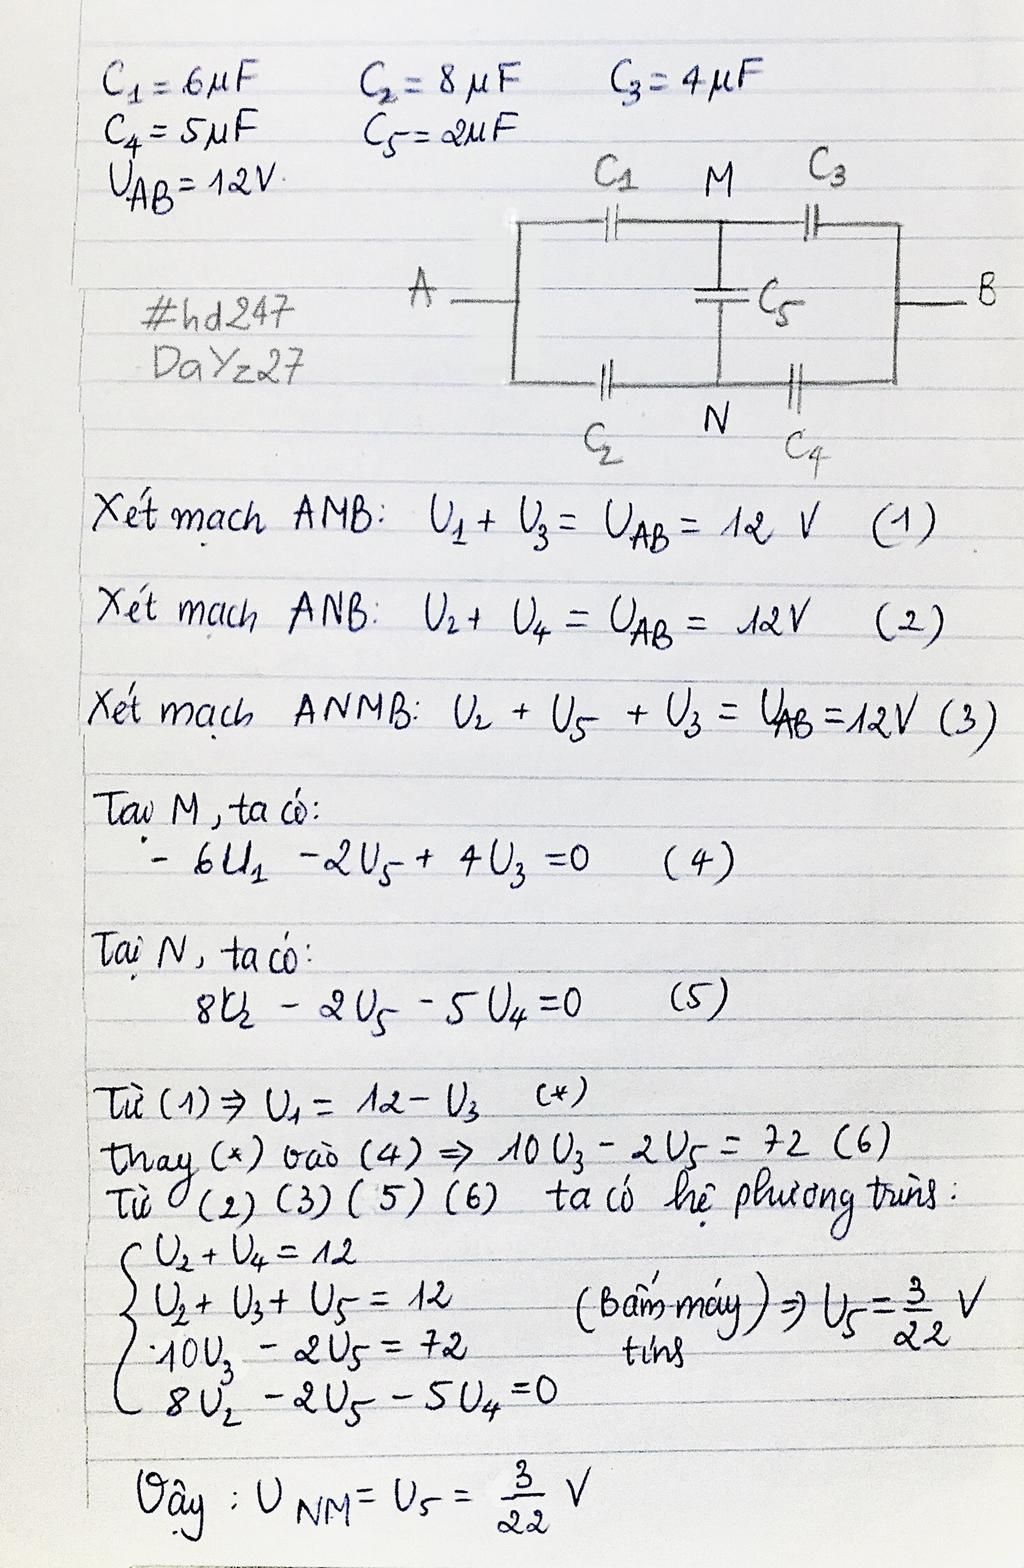 C₁ = 6μF C₂ = 8μF C₃ = 4μF
C₄ = 5μF C₅ = 2μF
U_AB = 12V
C₁ M C₃
A C₅ B
#hd247
DaYz27
C₂ N C₄
Xét mạch AMB: U₁ + U₃ = U_AB = 12 V (1)
Xét mạch ANB: U₂ + U₄ = U_AB = 12V (2)
Xét mạch ANMB: U₂ + U₅ + U₃ = U_AB = 12V (3)
Tại M, ta có:
- 6U₁ - 2U₅ + 4U₃ = 0 (4)
Tại N, ta có:
8U₂ - 2U₅ - 5U₄ = 0 (5)
Từ (1) ⇒ U₁ = 12 - U₃ (*)
thay (*) vào (4) ⇒ 10U₃ - 2U₅ = 72 (6)
Từ (2) (3) (5) (6) ta có hệ phương trình:
U₂ + U₄ = 12
U₂ + U₃ + U₅ = 12 (Bấm máy tính) ⇒ U₅ = 3/22 V
10U₃ - 2U₅ = 72
8U₂ - 2U₅ - 5U₄ = 0
Vậy : U_NM = U₅ = 3/22 V